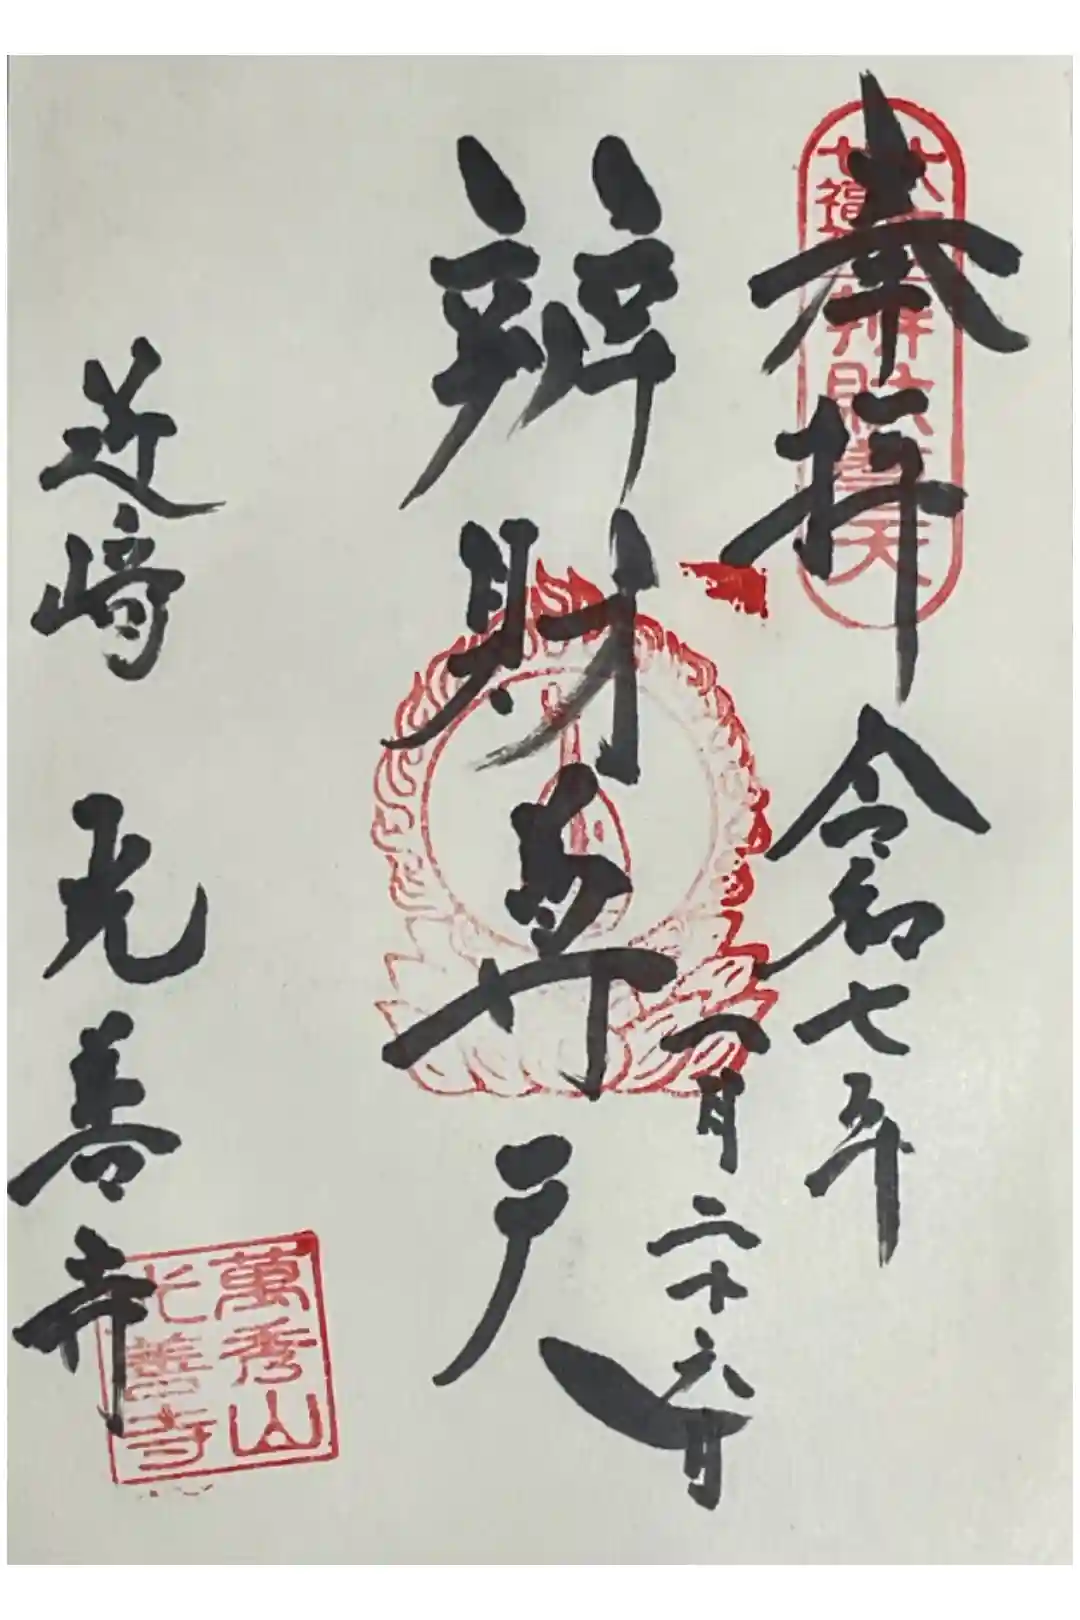 奉拝
令和七年
八月二十六日
辨財尊天
近崎 光善寺
七福
辨財尊天
萬秀山
光善寺